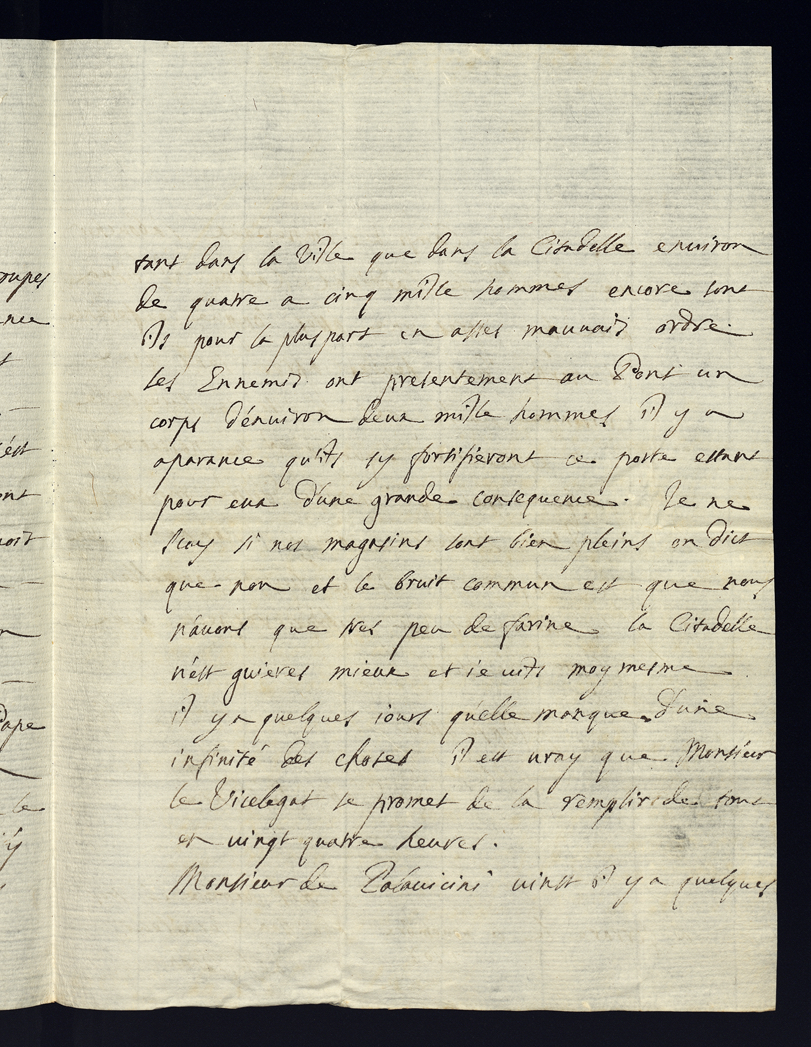 oupes
nce
t
est
ont
noit
n
Pape
le
y
tant dans la Ville que dans la Citadelle enuiron
de quatre a cinq mille hommes encore sont
ils pour la pluspart en asses mauuais ordre.
les Ennemis ont presentement au Pont un
corps d'enuiron deux mille hommes il y a
aparance qu'ils sy fortifieront ce poste estant
pour eux d'une grande consequence. Je ne
scay si nos magasins sont bien pleins on dict
que non et le bruit commun est que nous
n'auons que tres peu de farine la Citadelle
n'est guieres mieux et ie uits moy mesme
il y a quelques iours quelle manque d'une
infinité des choses il est uray que Monsieur
le Vicelegat se promet de la remplir de tout
en uingt quatre heures.
Monsieur de Palauicini uinst il y a quelques